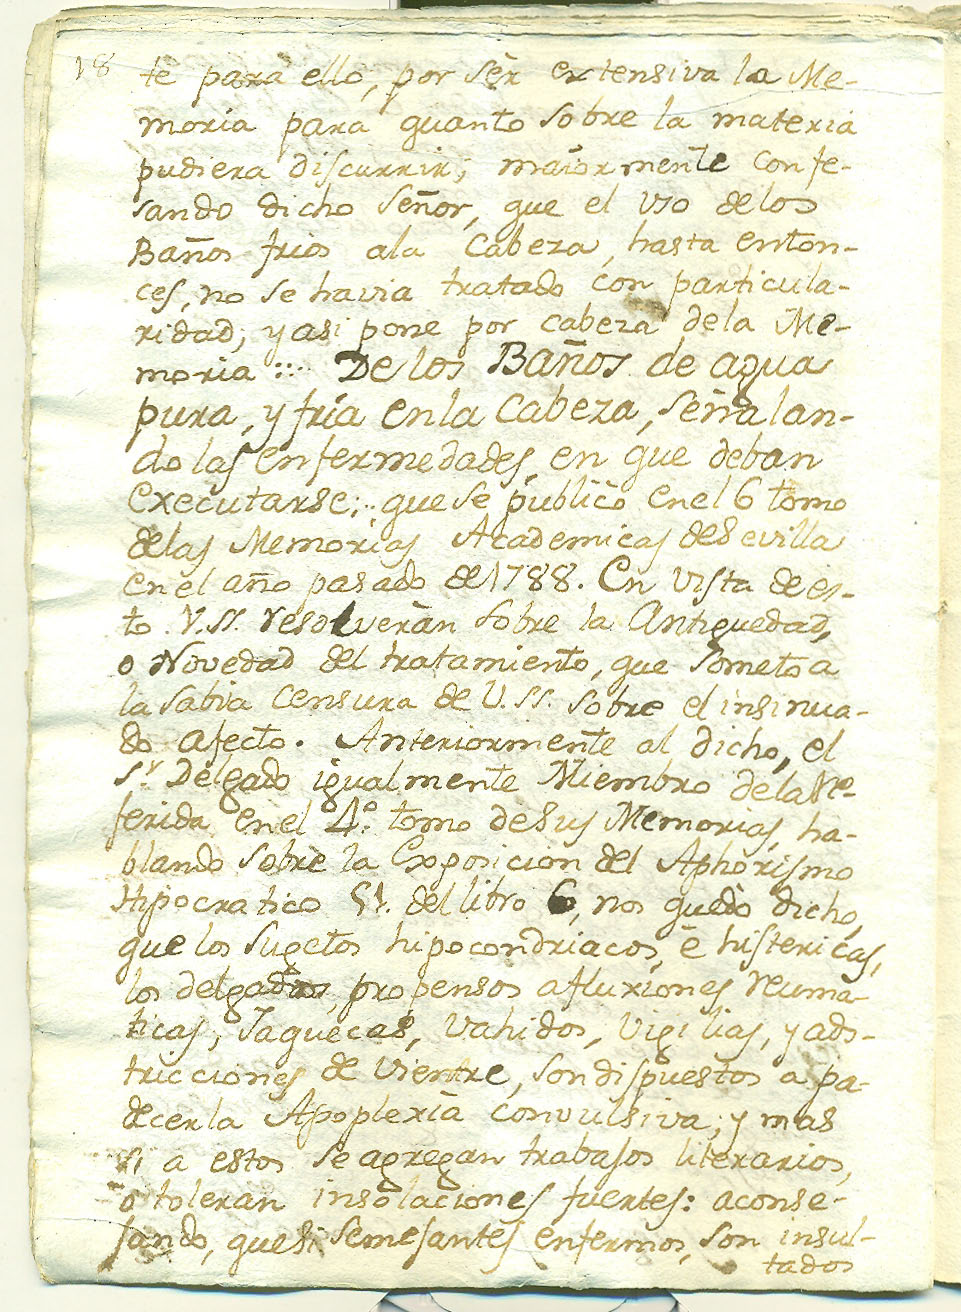 18
te para ello, por sèr extensiva la Me-
moria para quanto sobre la materia
pudiera discurrir; maiormente confe-
sando dicho Señor, que el vso de los
Baños frios ala Cabeza, hasta enton-
ces, no se havia tratado con particula-
ridad, y asi pone por cabeza dela Me-
moria :.. De los Baños de agua
pura, y fría en la Cabeza, señalan-
do las enfermedades, en que deban
executarse:, que se publicò en el 6 tomo
delas Memorias Academicas de Sevilla
en el año pasado de 1788. En vista de es-
to V.SS. resolveràn sobre la Antiguedad,
o Novedad del tratamiento, que someto a
la sabia censura de V.SS. sobre el insinua-
do afecto. Anteriormente al dicho, el
Sr. Delgado igualmente Miembro dela Re-
ferida, en el 4º. tomo de sus Memorias, ha-
blando sobre la Exposicion del Aphorismo
Hipocratico 51. del libro 6, nos quedò dicho,
que los sugetos hipocondriacos, è histericas,
los delgados, propensos a fluxiones reuma-
ticas, Jaquecas, Vahidos, Vigilias, y ads-
tricciones de Vientre, son dispuestos a pa-
decer la Apoplexia convulsiva; y mas
si a estos se agregan trabajos literarios,
o toleran insolaciones fuertes: aconse-
jando, que si semejantes enfermos, son insul-
tados